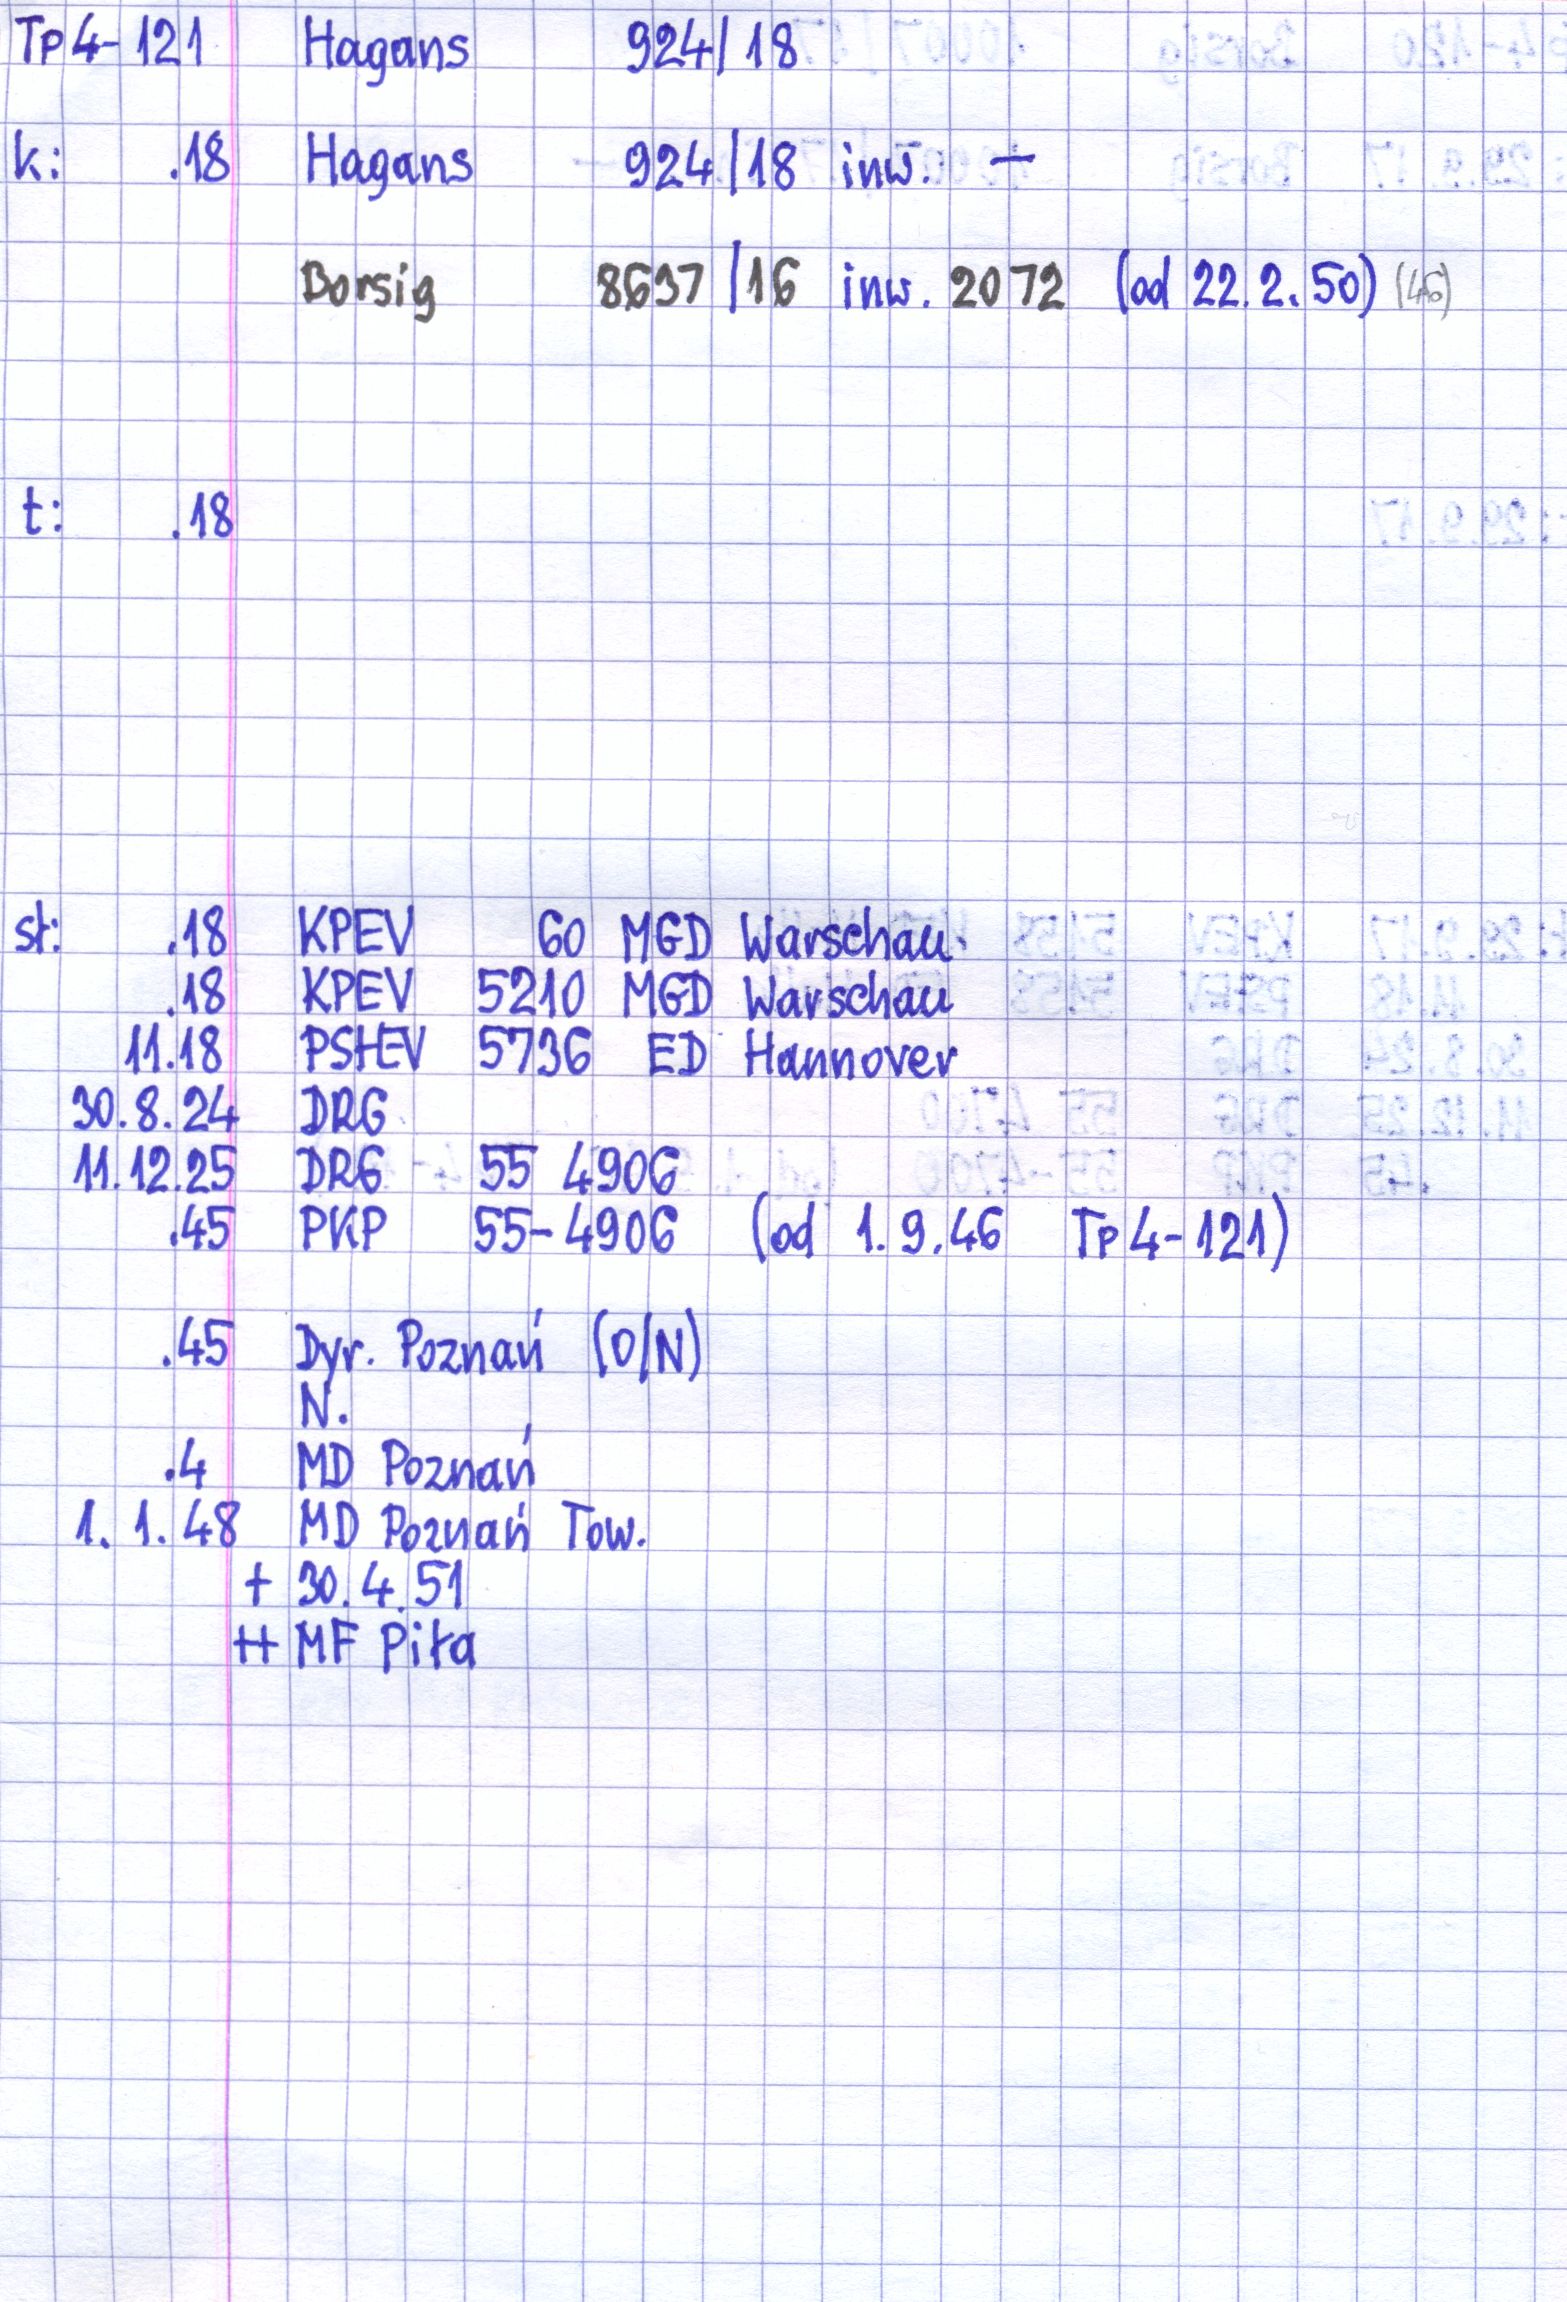 Tp4-121 Hagans 924/18
k: .18 Hagans 924/18 inw. —
Borsig 8697/16 inw. 2072 (od 22.2.50) (46)
t: .18
st: .18 KPEV 60 MGD Warschau
.18 KPEV 5210 MGD Warschau
11.18 PSHEV 5736 ED Hannover
30.8.24 DRG
11.12.25 DRG 55 4906
.45 PKP 55-4906 (od 1.9.46 Tp4-121)
.45 Dyr. Poznań (O/N)
N.
.4 MD Poznań
1.1.48 MD Poznań Tow.
+ 30.4.51
++ MF Piła